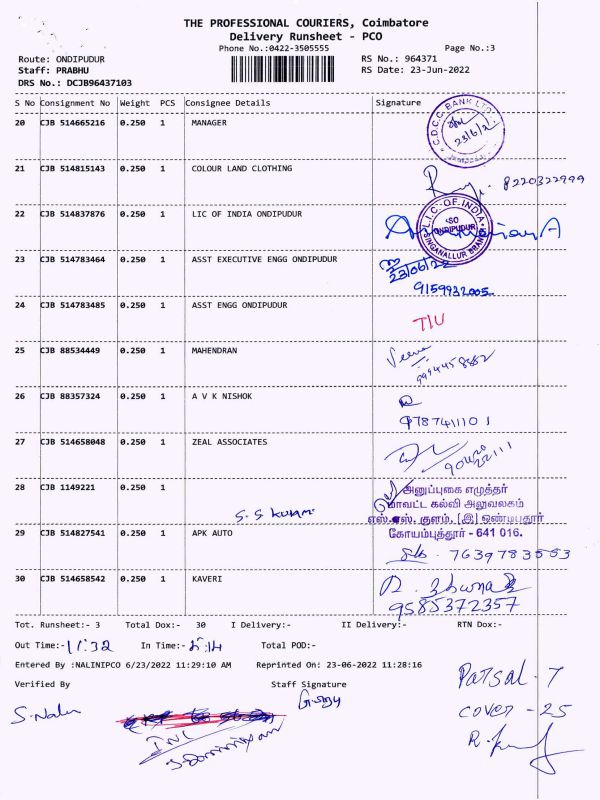 THE PROFESSIONAL COURIERS, Coimbatore
Delivery Runsheet - PCO
Phone No.:0422-3505555
Page No.:3
Route: ONDIPUDUR
RS No.: 964371
Staff: PRABHU
RS Date: 23-Jun-2022
DRS No.: DCJB96437103
S No Consignment No Weight PCS Consignee Details Signature
20 CJB 514665216 0.250 1 MANAGER
C.D.C.C. BANK LTD
23/6/2
21 CJB 514815143 0.250 1 COLOUR LAND CLOTHING
8220322999
22 CJB 514837876 0.250 1 LIC OF INDIA ONDIPUDUR
L.I.C. OF INDIA
SO
ONDIPUDUR
SINGANALLUR BRANCH
23 CJB 514783464 0.250 1 ASST EXECUTIVE ENGG ONDIPUDUR
23/06/22
9159932005
24 CJB 514783485 0.250 1 ASST ENGG ONDIPUDUR
T/U
25 CJB 88534449 0.250 1 MAHENDRAN
Veena
9994458882
26 CJB 88357324 0.250 1 A V K NISHOK
9787411101
27 CJB 514658048 0.250 1 ZEAL ASSOCIATES
28 CJB 1149221 0.250 1
அனுப்புகை எழுத்தர்
மாவட்ட கல்வி அலுவலகம்
S.S Kulam
எஸ்.எஸ். குளம், [இ] ஒண்டிபுதூர்
கோயம்புத்தூர் - 641 016.
29 CJB 514827541 0.250 1 APK AUTO
7639783553
30 CJB 514658542 0.250 1 KAVERI
9585372357
Tot. Runsheet:- 3 Total Dox:- 30 I Delivery:- II Delivery:- RTN Dox:-
Out Time:- 11:32 In Time:- 5:14 Total POD:-
Entered By :NALINIPCO 6/23/2022 11:29:10 AM Reprinted On: 23-06-2022 11:28:16
Verified By Staff Signature
Parsal - 7
S. Nalin
cover - 25